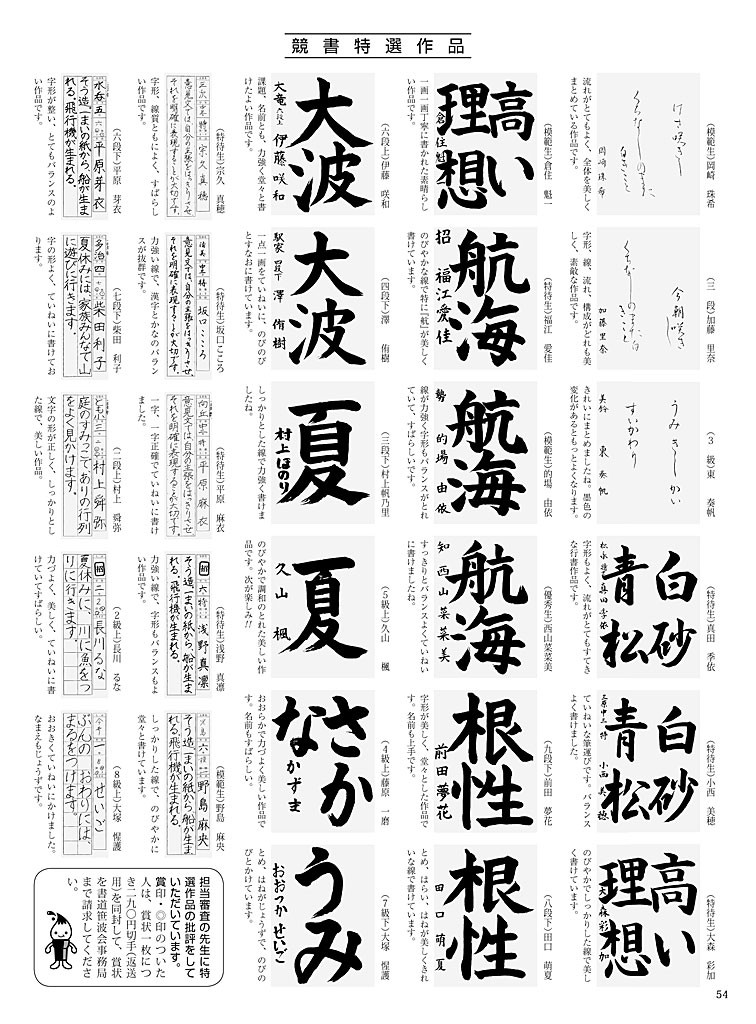 競書特選作品
（模範生）岡崎　珠希
けさ咲きし
くちなしのまた
白きこと
岡崎　珠希
流れがとてもよく、全体を美しく
まとめている作品です。
（三　段）加藤　里奈
今朝咲き
くちなしの
白きこと
加藤里奈
字形、線、流れ、構成がどれも美
しく、素敵な作品です。
（３　級）東　　奏帆
うみ
すいかわり
東　奏帆
きれいにまとめましたね。墨色の
変化があるともっとよくなります。
（特待生）真田　季依
白砂
青松
真田季依
字形もよく、流れがとてもすてき
な行書作品です。
（特待生）小西　美穂
白砂
青松
小西美穂
ていねいな筆運びです。バランス
よく書けました。
（特待生）大森　彩加
高い
理想
大森彩加
のびやかでしっかりした線で美し
く書けています。
（模範生）倉住　魁一
高い
理想
倉住魁一
一画一画丁寧に書かれた素晴らし
い作品です。
（特待生）福江　愛佳
航海
招　福江愛佳
のびやかな線で特に『航』が美しく
書けています。
（模範生）的場　由依
航海
勢　的場　由依
線が力強く字形もバランスがとれ
ていて、すばらしいです。
（優秀生）西山菜菜美
航海
知　西山菜菜美
すっきりとバランスよくていねい
に書けましたね。
（九段下）前田　夢花
根性
前田夢花
字形が美しく、堂々とした作品で
す。名前も上手です。
（八段下）田口　萌夏
根性
田口萌夏
とめ、はらい、はねが美しくきれ
いな線で書けています。
（六段上）伊藤　咲和
大波
大竜　六段上　伊藤咲和
課題、名前とも、力強く堂々と書
けたよい作品です。
（四段下）澤　　侑樹
大波
駅家　四段下　澤　侑樹
一点一画をていねいに、のびのび
とすなおに書けています。
（三段下）村上帆乃里
夏
村上ほのり
しっかりとした線で力強く書けま
したね。
（５級上）久山　　楓
夏
久山　楓
のびやかで調和のとれた美しい作
品です。次が楽しみ!!
（４級上）藤原　一磨
さか
な
かずま
おおらかで力づよく美しい作品で
す。名前もすばらしい。
（７級下）大塚　惺護
うみ
おおつか　せいご
とめ、はねがじょうずで、のびの
びとかけています。
（特待生）宗久　真穂
宗久真穂
意見文では、自分の主張をはっきりさせ、
それを明確に表現することが大切です。
字形、線質ともによく、すばらし
い作品です。
（特待生）坂口こころ
坂口こころ
意見文では、自分の主張をはっきりさせ、
それを明確に表現することが大切です。
力強い線で、漢字とかなのバラン
スが抜群です。
（特待生）平原　麻衣
向丘　中一　特　平原麻衣
意見文では、自分の主張をはっきりさせ、
それを明確に表現することが大切です。
一字、一字正確でていねいに書け
ました。
（特待生）浅野　真凛
招　六　特　浅野真凛
そう造一まいの紙から、船が生ま
れる。飛行機が生まれる。
力強い線で、字形もバランスもよ
い作品です。
（模範生）野島　麻央
六　野島麻央
そう造一まいの紙から、船が生ま
れる。飛行機が生まれる。
しっかりした線で、のびやかに
堂々と書けています。
（六段下）平原　芽衣
水呑　五　六段下　平原芽衣
そう造一まいの紙から、船が生ま
れる。飛行機が生まれる。
字形が整い、とてもバランスのよ
い作品です。
（七段下）柴田　利子
多治　四　七段下　柴田利子
夏休みには、家族みんなで山
に遊びに行きます。
字の形よく、ていねいに書けてお
ります。
（二段上）村上　舜弥
とも小　三　二段上　村上舜弥
庭のすみっこでありの行列
をよく見かけます。
文字の形が正しく、しっかりとし
た線で、美しい作品。
（２級上）長川　るな
招　二　2級上　長川るな
夏休みに、川に魚をつ
りに行きます。
力づよく、美しく、ていねいに書
けていてすばらしい。
（８級上）大塚　惺護
今市　一　8級上　せいご
ぶんの　おわりには、
まるをつけます。
おおきくていねいにかけました。
なまえもじょうずです。
担当審査の先生に特
選作品の批評をして
いただいています。
賞印・◎印のついた
人は、賞状一枚につ
き二九〇円切手（返送
用）を同封して、賞状
を書道笹波会事務局
まで請求してくださ
い。
54